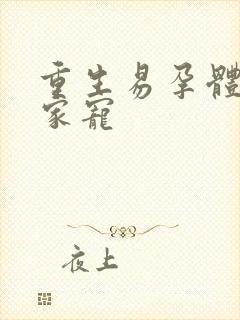 重生易孕體
家寵
夜上